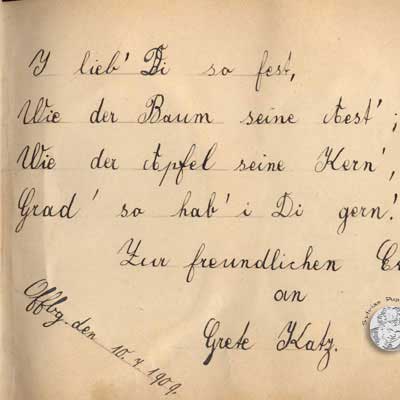 I lieb' Di so fest,
Wie der Baum seine Aest';
Wie der Apfel seine Kern',
Grad' so hab' i Di gern!
Zur freundlichen
an
Grete Katz.
Offbg. den 10. 1909.